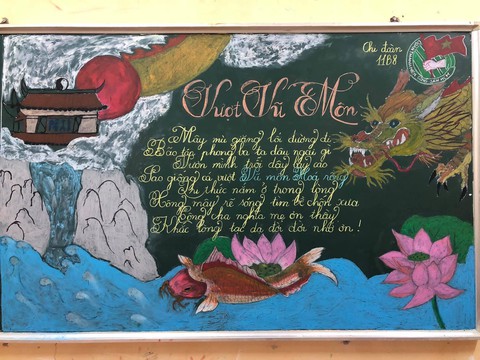 Chi đoàn
11B8
Vượt Vũ Môn
Mây mù giăng lối đường đi
Bão táp phong ba ta đâu ngại gì
Vươn mình trỗi dậy
Sao giống cá vượt Vũ môn Hoá rồng
Tri thức nằm ở trong lòng
Hồng mây rẽ sóng tìm về chốn xưa
Công cha nghĩa mẹ ơn thầy
Khắc lòng tạc dạ đời đời nhớ ơn !